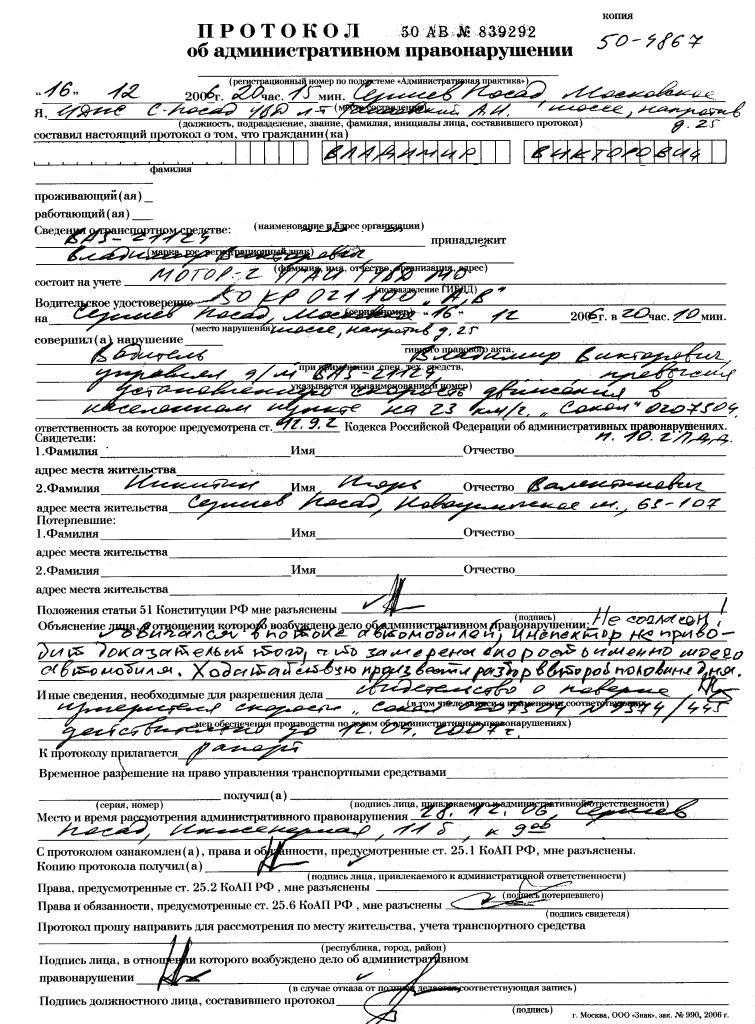 копия
ПРОТОКОЛ 50 АВ № 839292
об административном правонарушении
50-4867
(регистрационный номер по подсистеме «Административная практика»)
"16" 12 2006г. 20 час. 15 мин. Сергиев Посад Московское
Я, С-Посад УВД л-т А.Н. шоссе, напротив
(должность, подразделение, звание, фамилия, инициалы лица, составившего протокол) д. 25
составил настоящий протокол о том, что гражданин(ка)
ВЛАДИМИР ВИКТОРОВИЧ
фамилия
проживающий(ая)
работающий(ая)
(наименование и адрес организации)
Сведения о транспортном средстве:
ВАЗ-21124 принадлежит
(марка, гос. регистрационный знак)
Владимир Викторович,
(фамилия, имя, отчество, организация, адрес)
состоит на учете МОТОР-2 ГАИ ГУВД МО
(подразделение ГИБДД)
Водительское удостоверение 50 КР 021100 "А,В"
(серия, номер)
на Сергиев Посад, Московское "16" 12 2006г. в 20 час. 10 мин.
(место нарушения) шоссе, напротив д. 25
совершил(а) нарушение
Водитель Владимир Викторович,
управлял а/м ВАЗ-21124, превысил
при применении спец. тех. средств,
указывается их наименование и номер)
установленную скорость движения в
населенном пункте на 23 км/г. "Сокол" 0207504.
ответственность за которое предусмотрена ст. 12.9.2 Кодекса Российской Федерации об административных правонарушениях.
п. 10.2 ПДД
Свидетели:
1.Фамилия Имя Отчество
адрес места жительства
2.Фамилия Никитин Имя Игорь Отчество Валентинович
адрес места жительства Сергиев Посад, 63-107
Потерпевшие:
1.Фамилия Имя Отчество
адрес места жительства
2.Фамилия Имя Отчество
адрес места жительства
Положения статьи 51 Конституции РФ мне разъяснены
(подпись)
Объяснение лица, в отношении которого возбуждено дело об административном правонарушении: Не согласен!
Двигался в потоке автомобилей, инспектор не приво-
дит доказательств того, что замерена скорость именно моего
автомобиля. Ходатайствую произвести разбор в второй половине дня.
Иные сведения, необходимые для разрешения дела свидетельство о поверке
(в том числе записи о применении соответствующих
измерителя скорости "Сокол" 0207504 №
мер обеспечения производства по делам об административных правонарушениях)
действительно до 12.04.2007г.
К протоколу прилагается рапорт
Временное разрешение на право управления транспортными средствами
получил(а)
(серия, номер) (подпись лица, привлекаемого к административной ответственности)
Место и время рассмотрения административного правонарушения 28.12.06, Сергиев
Посад, Инженерная, 11б, к 9 00
С протоколом ознакомлен(а), права и обязанности, предусмотренные ст. 25.1 КоАП РФ, мне разъяснены.
Копию протокола получил(а)
(подпись лица, привлекаемого к административной ответственности)
Права, предусмотренные ст. 25.2 КоАП РФ , мне разъяснены
(подпись потерпевшего)
Права и обязанности, предусмотренные ст. 25.6 КоАП РФ , мне разъснены
(подпись свидетеля)
Протокол прошу направить для рассмотрения по месту жительства, учета транспортного средства
(республика, город, район)
Подпись лица, в отношении которого возбуждено дело об административном
правонарушении
(в случае отказа от подписи делается соответствующая запись)
Подпись должностного лица, составившего протокол
(подпись)
г. Москва, ООО «Знак». зак. № 990, 2006 г.